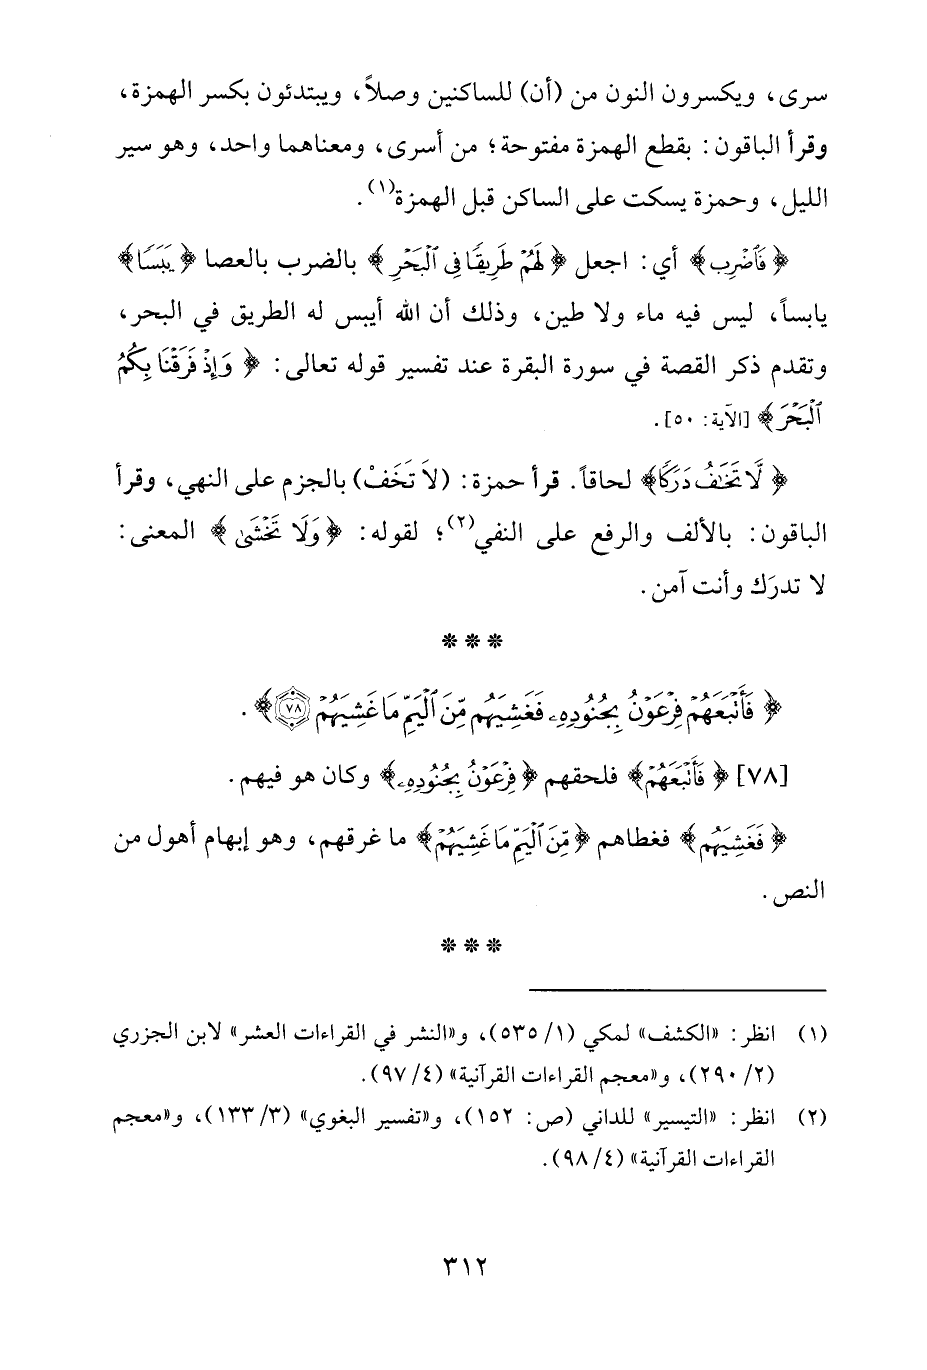 سرى، ويكسرون النون من (أن) للساكنين وصلاً، ويبتدئون بكسر الهمزة،
وقرأ الباقون: بقطع الهمزة مفتوحة؛ من أسرى، ومعناهما واحد، وهو سير
الليل، وحمزة يسكت على الساكن قبل الهمزة(١).
﴿فَٱضْرِبْ﴾ أي: اجعل ﴿لَهُمْ طَرِيقًا فِى ٱلْبَحْرِ﴾ بالضرب بالعصا ﴿يَبَسًا﴾
يابساً، ليس فيه ماء ولا طين، وذلك أن الله أيبس له الطريق في البحر،
وتقدم ذكر القصة في سورة البقرة عند تفسير قوله تعالى: ﴿وَإِذْ فَرَقْنَا بِكُمُ
ٱلْبَحْرَ﴾ [الآية: ٥٠].
﴿لَّا تَخَٰفُ دَرَكًا﴾ لحاقاً. قرأ حمزة: (لاَ تَخَفْ) بالجزم على النهي، وقرأ
الباقون: بالألف والرفع على النفي(٢)؛ لقوله: ﴿وَلَا تَخْشَىٰ﴾ المعنى:
لا تدرَك وأنت آمن.
***
﴿فَأَتْبَعَهُمْ فِرْعَوْنُ بِجُنُودِهِۦ فَغَشِيَهُم مِّنَ ٱلْيَمِّ مَا غَشِيَهُمْ ٧٨﴾.
[٧٨] ﴿فَأَتْبَعَهُمْ﴾ فلحقهم ﴿فِرْعَوْنُ بِجُنُودِهِۦ﴾ وكان هو فيهم.
﴿فَغَشِيَهُم﴾ فغطاهم ﴿مِّنَ ٱلْيَمِّ مَا غَشِيَهُمْ﴾ ما غرقهم، وهو إبهام أهول من
النص.
***
(١) انظر: «الكشف» لمكي (١/ ٥٣٥)، و«النشر في القراءات العشر» لابن الجزري
(٢/ ٢٩٠)، و«معجم القراءات القرآنية» (٤/ ٩٧).
(٢) انظر: «التيسير» للداني (ص: ١٥٢)، و«تفسير البغوي» (٣/ ١٣٣)، و«معجم
القراءات القرآنية» (٤/ ٩٨).
٣١٢